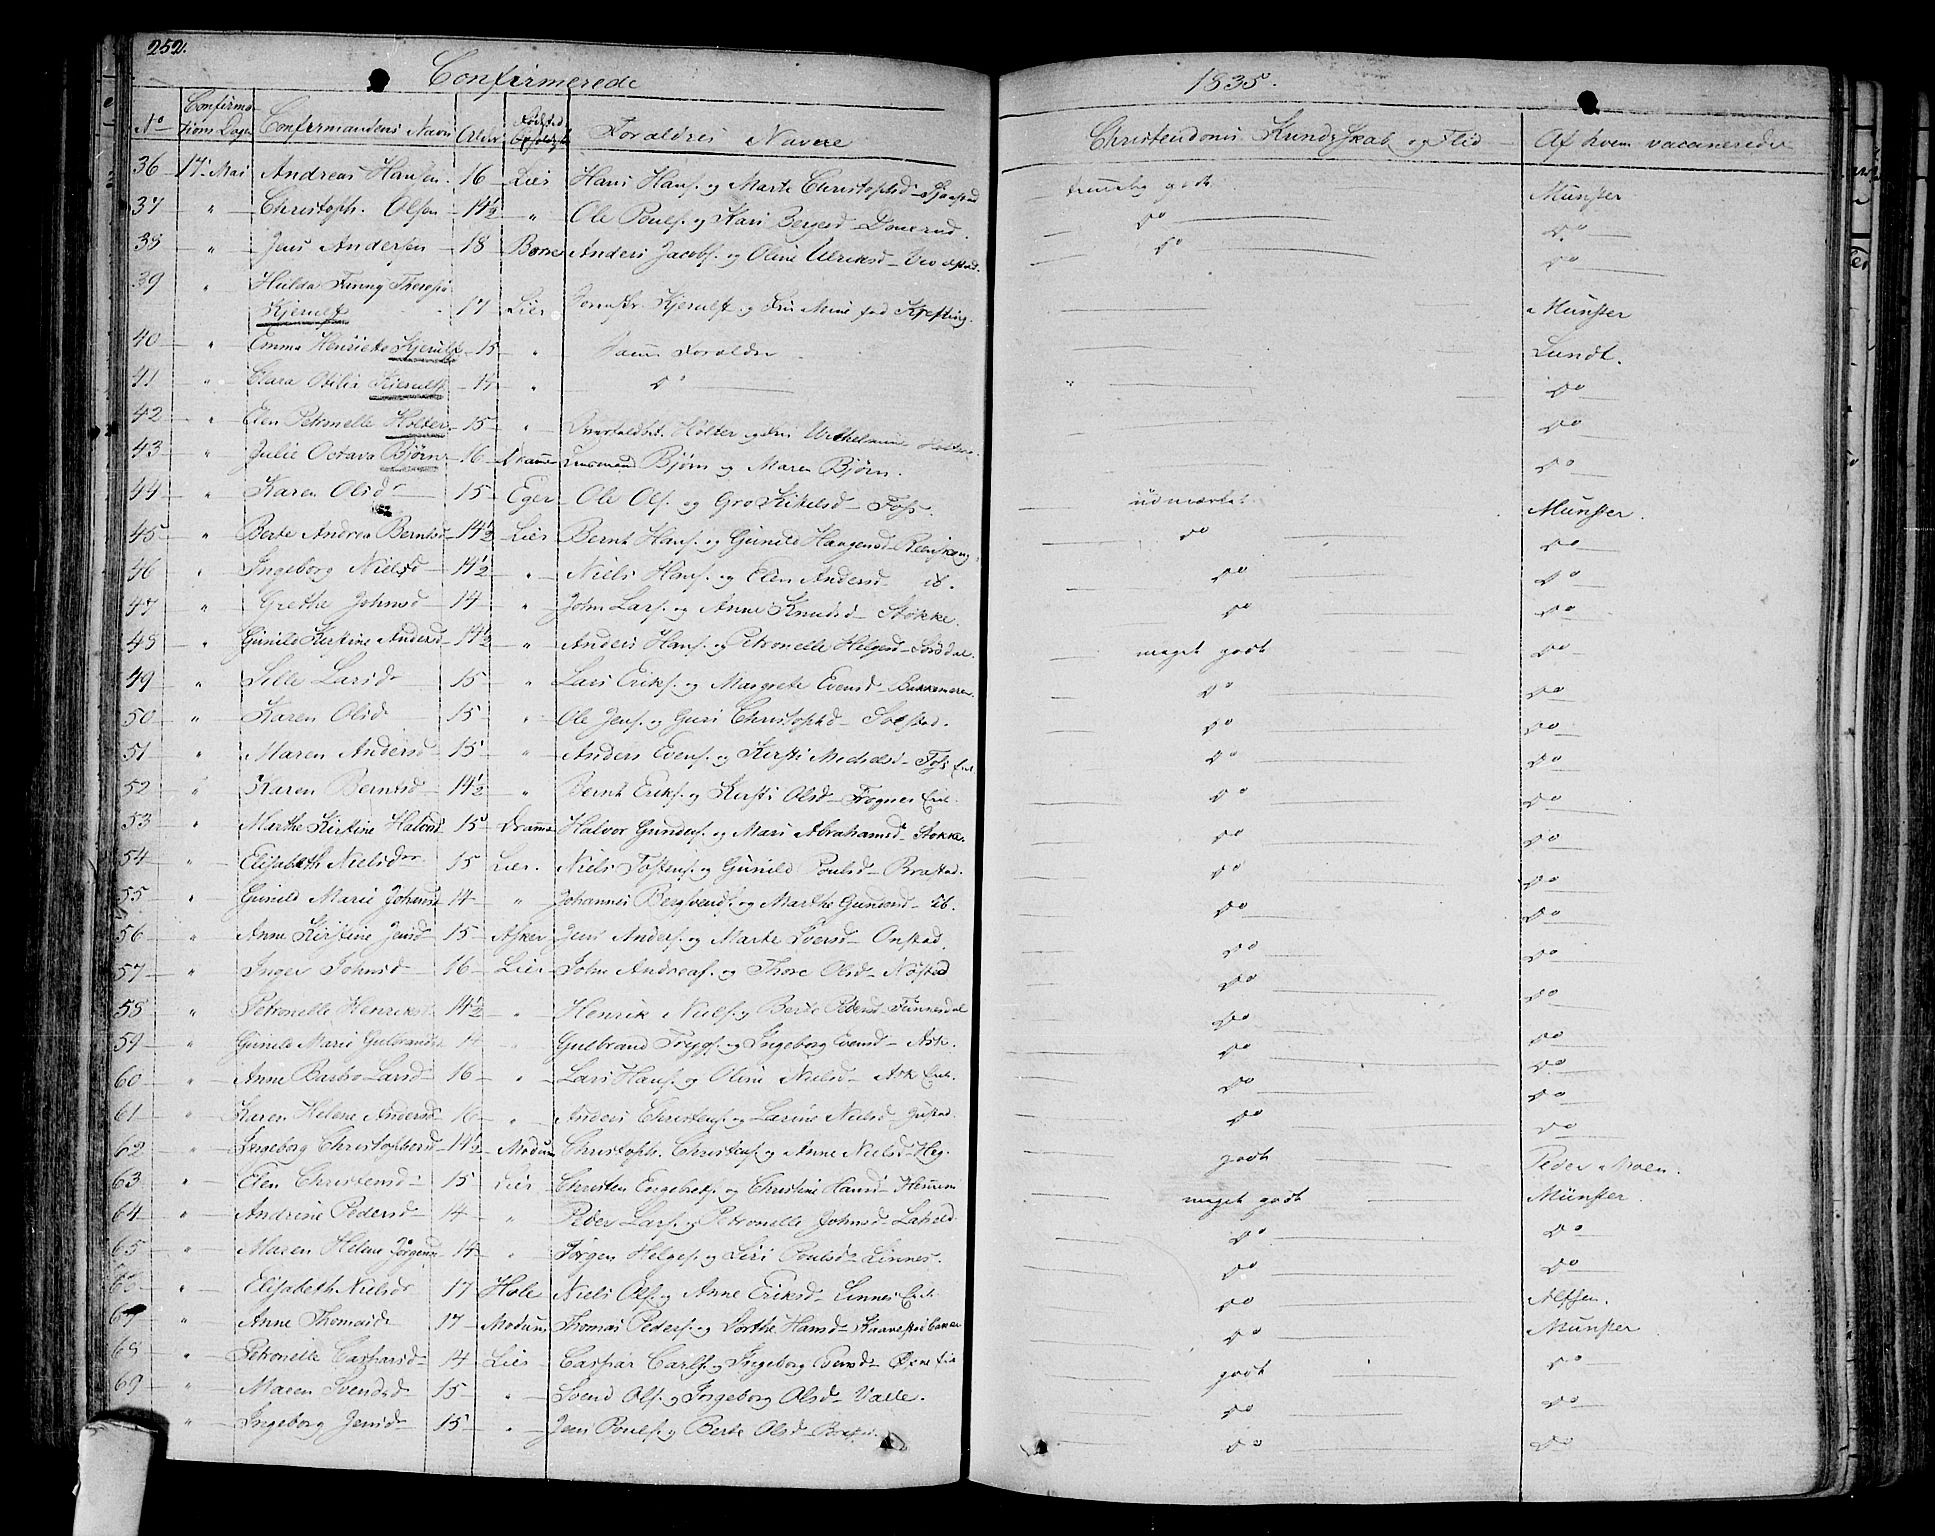 252.
Confirmerede
1835.
No Confirmations Dagen Confirmandens Navn Alder Foraldres Navne Christendoms Kundskab og Flid Af hvem vaccinerede
36 17 Mai Andreas Hansen 16 Lier Hans Hans. og Marte Christophsd temmelig godt Münster
37 " Christoph. Olsen 14½ " Ole Pouls. og Kari Do Do
38 " Jens Andersen 18 Anders Jacobs. og Oline Ulriksd Do Do
39 " Hulda Fanny
Kjerulf 17 Lier Kjerulf og Münster
40 " Emma Henriette Kjerulf 15 " Samme Foraldre Lundt.
41 " Clara Otilia Kjerulf 14 " Do " Do
42 " Elen Petronelle Holter 15 " Holter og Do
43 " Julie Octava Bjørn 16 Bjørn og Maren Bjørn. Do
44 " Karen Olsd 15 Eger Ole Ols. og Gro Kittelsd Foss. Münster.
45 " Berte Andrea Berntsd 14½ Lier Bernt Hans. og Gunild Haagensd Do Do
46 " Ingeborg Nielsd 14½ " Niels Hans. og Elen Andersd ib. Do Do
47 " Grethe Johnsd 14 " John Lars. og Anne Knudsd Stokke. Do Do
48 " Gunild Kirstine Andersd 14½ " Anders Hans. og Petronelle Helgesd meget godt Do
49 " Sille Larsd 15 " Lars Eriks. og Margrete Evensd Do Do
50 " Karen Olsd 15 " Ole Jens. og Guri Christophd Solstad. Do Do
51 " Maren Andersd 15 " Anders Evens. og Kirsti Michelsd Foss Eie. Do Do
52 " Karen Berntsd 14½ " Bernt Eriks. og Kirsti Olsd Eie. Do Do
53 " Marthe Kirstine Halvorsd 15 Dramm Halvor Gunders. og Mari Abrahamsd Stokke. Do Do
54 " Elisabeth Nielsd 15 Lier. Niels Tostens. og Gunild Poulsd Brastad. Do Do
55 " Gunild Marie Johansd 14 " Johannes Bergsvends. og Marthe Gundersd ib. Do Do
56 " Anne Kirstine Jensd 15 Asker Jens Anders. og Marte Iversd Onstad. Do Do
57 " Inger Johnsd 16 Lier John Andreas. og Thore Olsd Nøstad Do Do
58 " Petronelle Henriksd 14½ " Henrik Niels. og Berte Pedersd Do Do
59 " Gunild Marie Gulbrandsd 14 " Gulbrand og Ingeborg Evensd Ask. Do Do
60 " Anne Barbo Larsd 16 " Lars Hans. og Oline Nielsd Ask Eie. Do Do
61 " Karen Helene Andersd 16 " Anders Christens. og Larine Nielsd Do Do
62 " Ingeborg Christophersd 14½ Modum Christoph. Christens. og Anne Nielsd Heg. godt Peder Moen.
63 " Elen Christensd 15 Lier Christen Engebrets. og Christine Hansd meget godt Münster.
64 " Andrine Pedersd 14 " Peder Lars. og Petronelle Johnsd Do Do
65 " Maren Helene Jørgensd 14 " Jørgen Helges. og Siri Poulsd Linnes. Do Do
" Elisabeth Nielsd 17 Hole Niels Ols. og Anne Eriksd Linnes Eie. Do Alfsen.
67 " Anne Thomasd 17 Modum Thomas Peders. og Dorthe Hansd Do Münster
68 " Petronelle Caspersd 14 Lier Caspar Carls. og Ingeborg godt Do
69 " Maren Svendsd 15 " Svend Ols. og Ingeborg Olsd Valle. Do Do
" Ingeborg Jensd 15 " Jens Pouls. og Berte Olsd Do Do